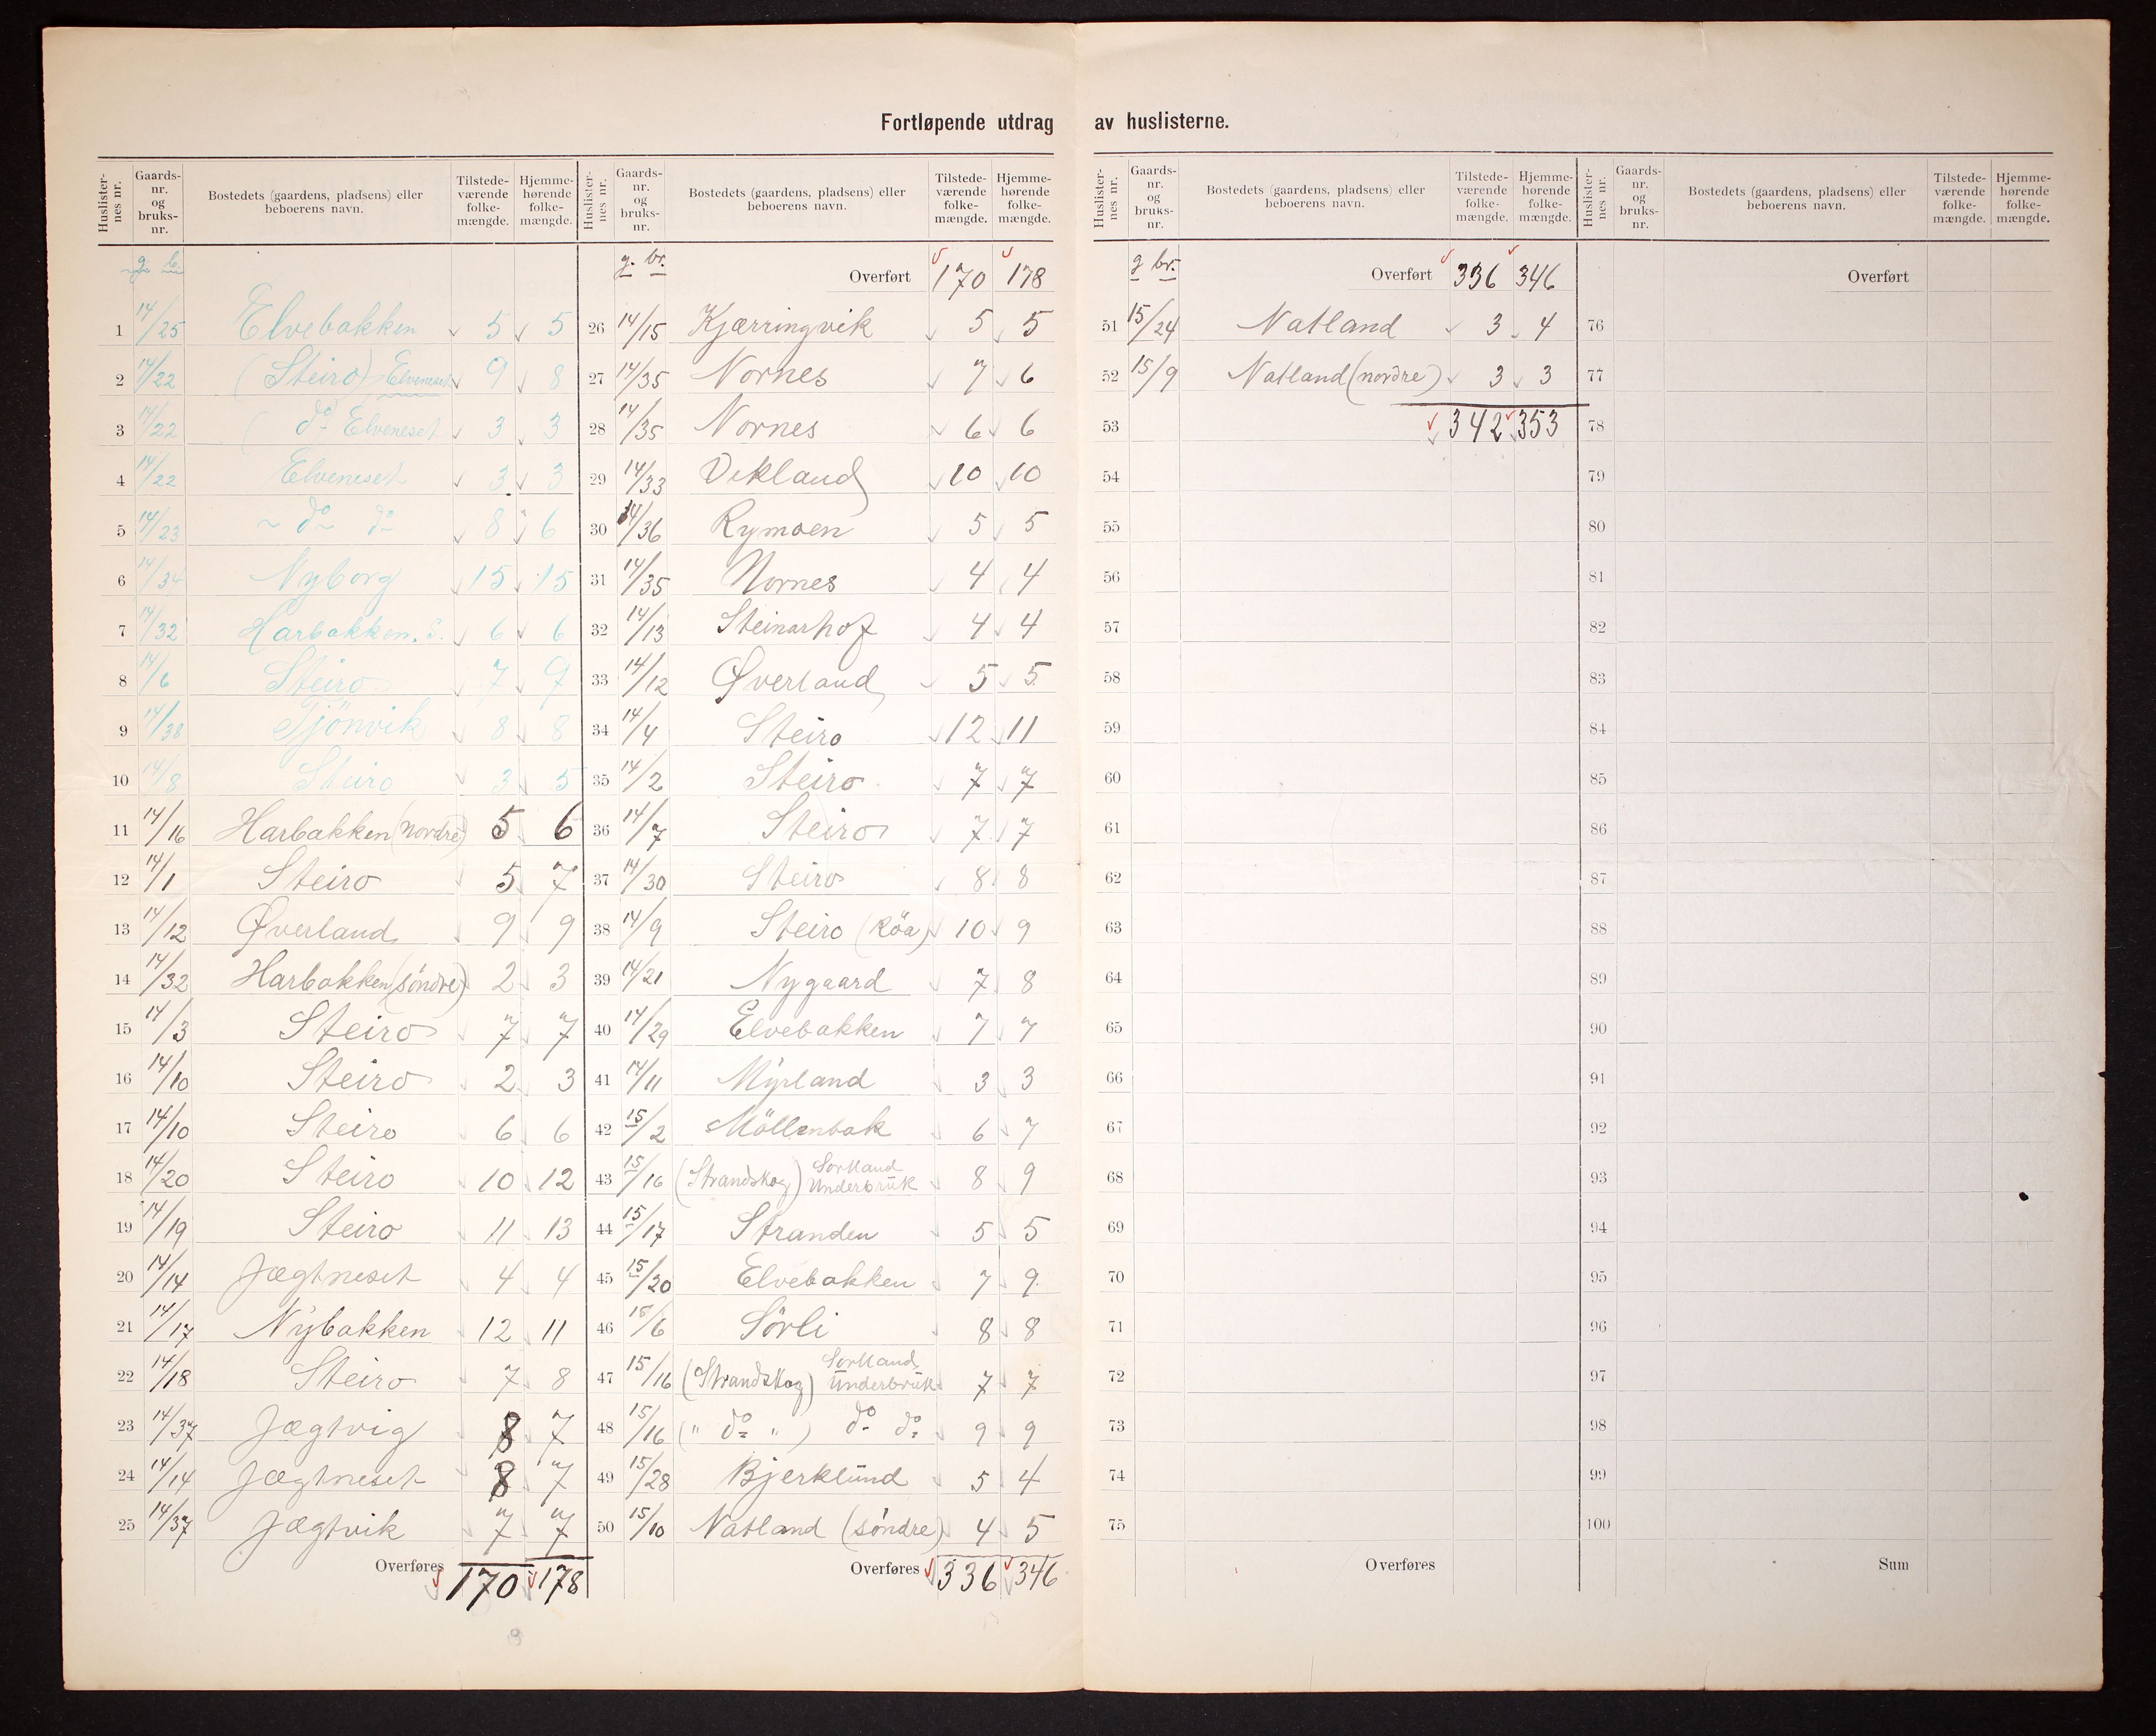 Fortløpende utdrag av huslisterne.
Huslisternes nr. Gaards-nr. og bruks-nr. Bostedets (gaardens, pladsens) eller beboerens navn. Tilstede-værende folke-mængde. Hjemme-hørende folke-mængde.
g. b.
1 14/25 Elvebakken 5 5
2 14/22 (Steiro) Elveneset 9 8
3 14/22 ( do Elveneset 3 3
4 14/22 Elveneset 3 3
5 14/23 ~ do ~ do 8 6
6 14/34 Nyborg 15 15
7 14/32 Harbakken. S. 6 6
8 14/6 Steiro 7 9
9 14/38 Tjönvik 8 8
10 14/8 Steiro 3 5
11 14/16 Harbakken (nordre) 5 6
12 14/1 Steiro 5 7
13 14/12 Øverland 9 9
14 14/32 Harbakken (söndre) 2 3
15 14/3 Steiro 7 7
16 14/10 Steiro 2 3
17 14/10 Steiro 6 6
18 14/20 Steiro 10 12
19 14/19 Steiro 11 13
20 14/14 Jægtneset 4 4
21 14/17 Nybakken 12 11
22 14/18 Steiro 7 8
23 14/37 Jægtvig 8 7
24 14/14 Jægtneset 8 7
25 14/37 Jægtvik 7 7
Overføres 170 178
Huslisternes nr. Gaards-nr. og bruks-nr. Bostedets (gaardens, pladsens) eller beboerens navn. Tilstede-værende folke-mængde. Hjemme-hørende folke-mængde.
g. br. Overført 170 178
26 14/15 Kjærringvik 5 5
27 14/35 Nornes 7 6
28 14/35 Nornes 6 6
29 14/33 Vikland 10 10
30 14/36 Rymoen 5 5
31 14/35 Nornes 4 4
32 14/13 Steinarhof 4 4
33 14/12 Øverland 5 5
34 14/4 Steiro 12 11
35 14/2 Steiro 7 7
36 14/7 Steiro 7 7
37 14/30 Steiro 8 8
38 14/9 Steiro (Röa) 10 9
39 14/21 Nygaard 7 8
40 14/29 Elvebakken 7 7
41 14/11 Myrland 3 3
42 15/2 Möllenbak 6 7
43 15/16 (Strandskog) Sortland Underbruk 8 9
44 15/17 Stranden 5 5
45 15/20 Elvebakken 7 9
46 15/6 Sörli 8 8
47 15/16 (Strandskog) Sortland Underbruk 7 7
48 15/16 (" do ") do do 9 9
49 15/28 Bjerklund 5 4
50 15/10 Natland (söndre) 4 5
Overføres 336 346
Huslisternes nr. Gaards-nr. og bruks-nr. Bostedets (gaardens, pladsens) eller beboerens navn. Tilstede-værende folke-mængde. Hjemme-hørende folke-mængde.
g br. Overført 336 346
51 15/24 Natland 3 4
52 15/9 Natland (nordre) 3 3
53 342 353
54
55
56
57
58
59
60
61
62
63
64
65
66
67
68
69
70
71
72
73
74
75
Overføres
Huslisternes nr. Gaards-nr. og bruks-nr. Bostedets (gaardens, pladsens) eller beboerens navn. Tilstede-værende folke-mængde. Hjemme-hørende folke-mængde.
Overført
76
77
78
79
80
81
82
83
84
85
86
87
88
89
90
91
92
93
94
95
96
97
98
99
100
Sum